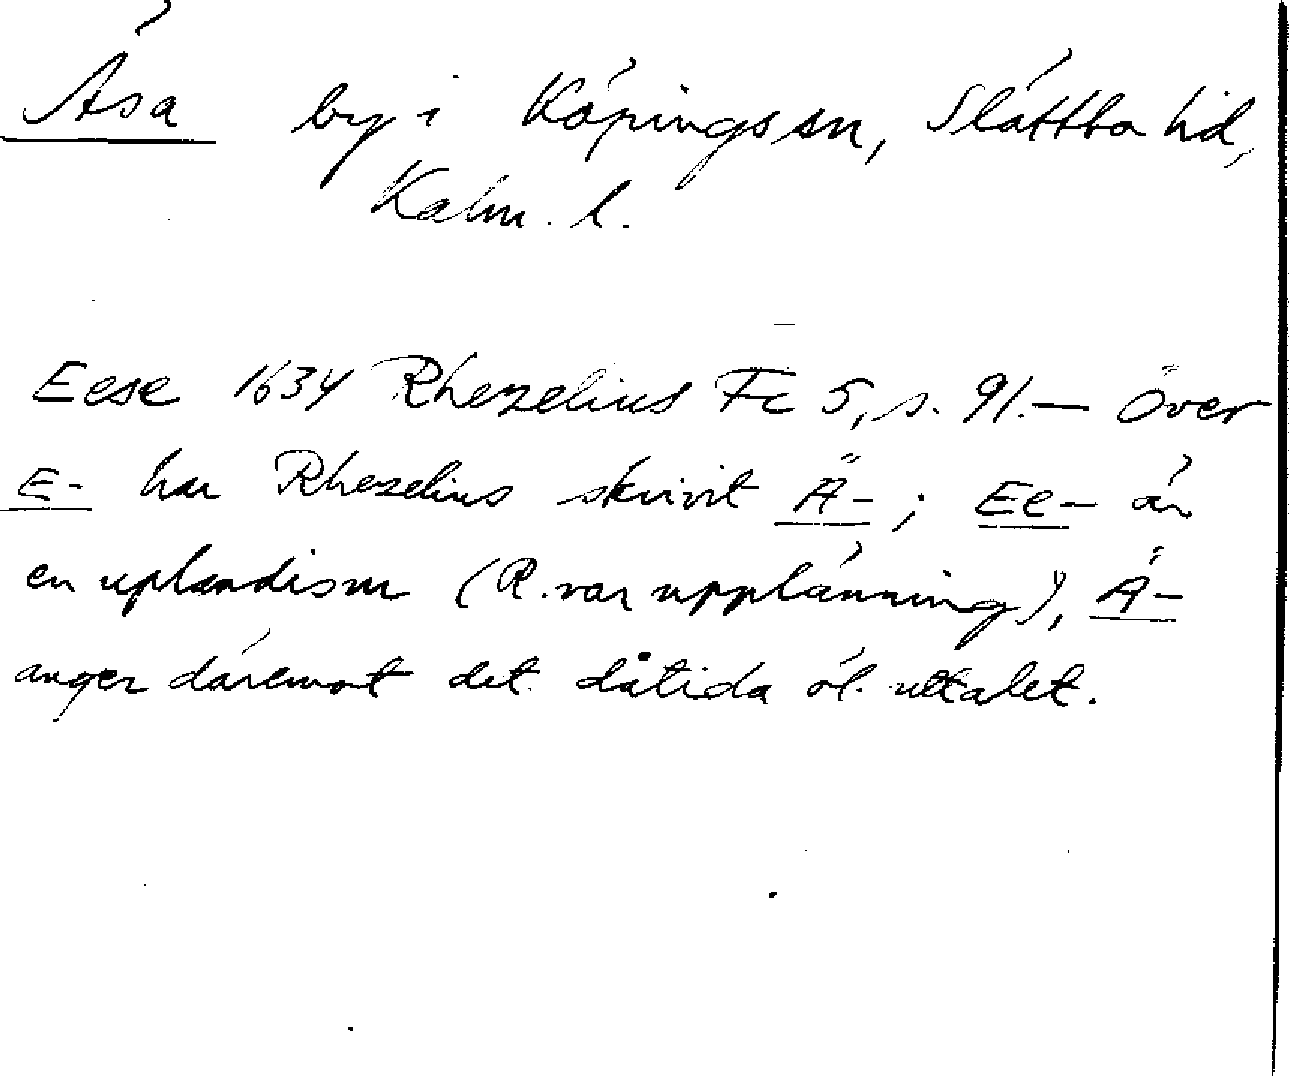 Äsa by i Köpings sn, Slättbo hd,
Kalm. l.
Eese 1634 Rhezelius Fc 5, s. 91. — Över
E- har Rhezelius skrivit Ä-; Ee- är
en uplandism (R. var upplänning), Ä-
anger däremot det dåtida öl. uttalet.